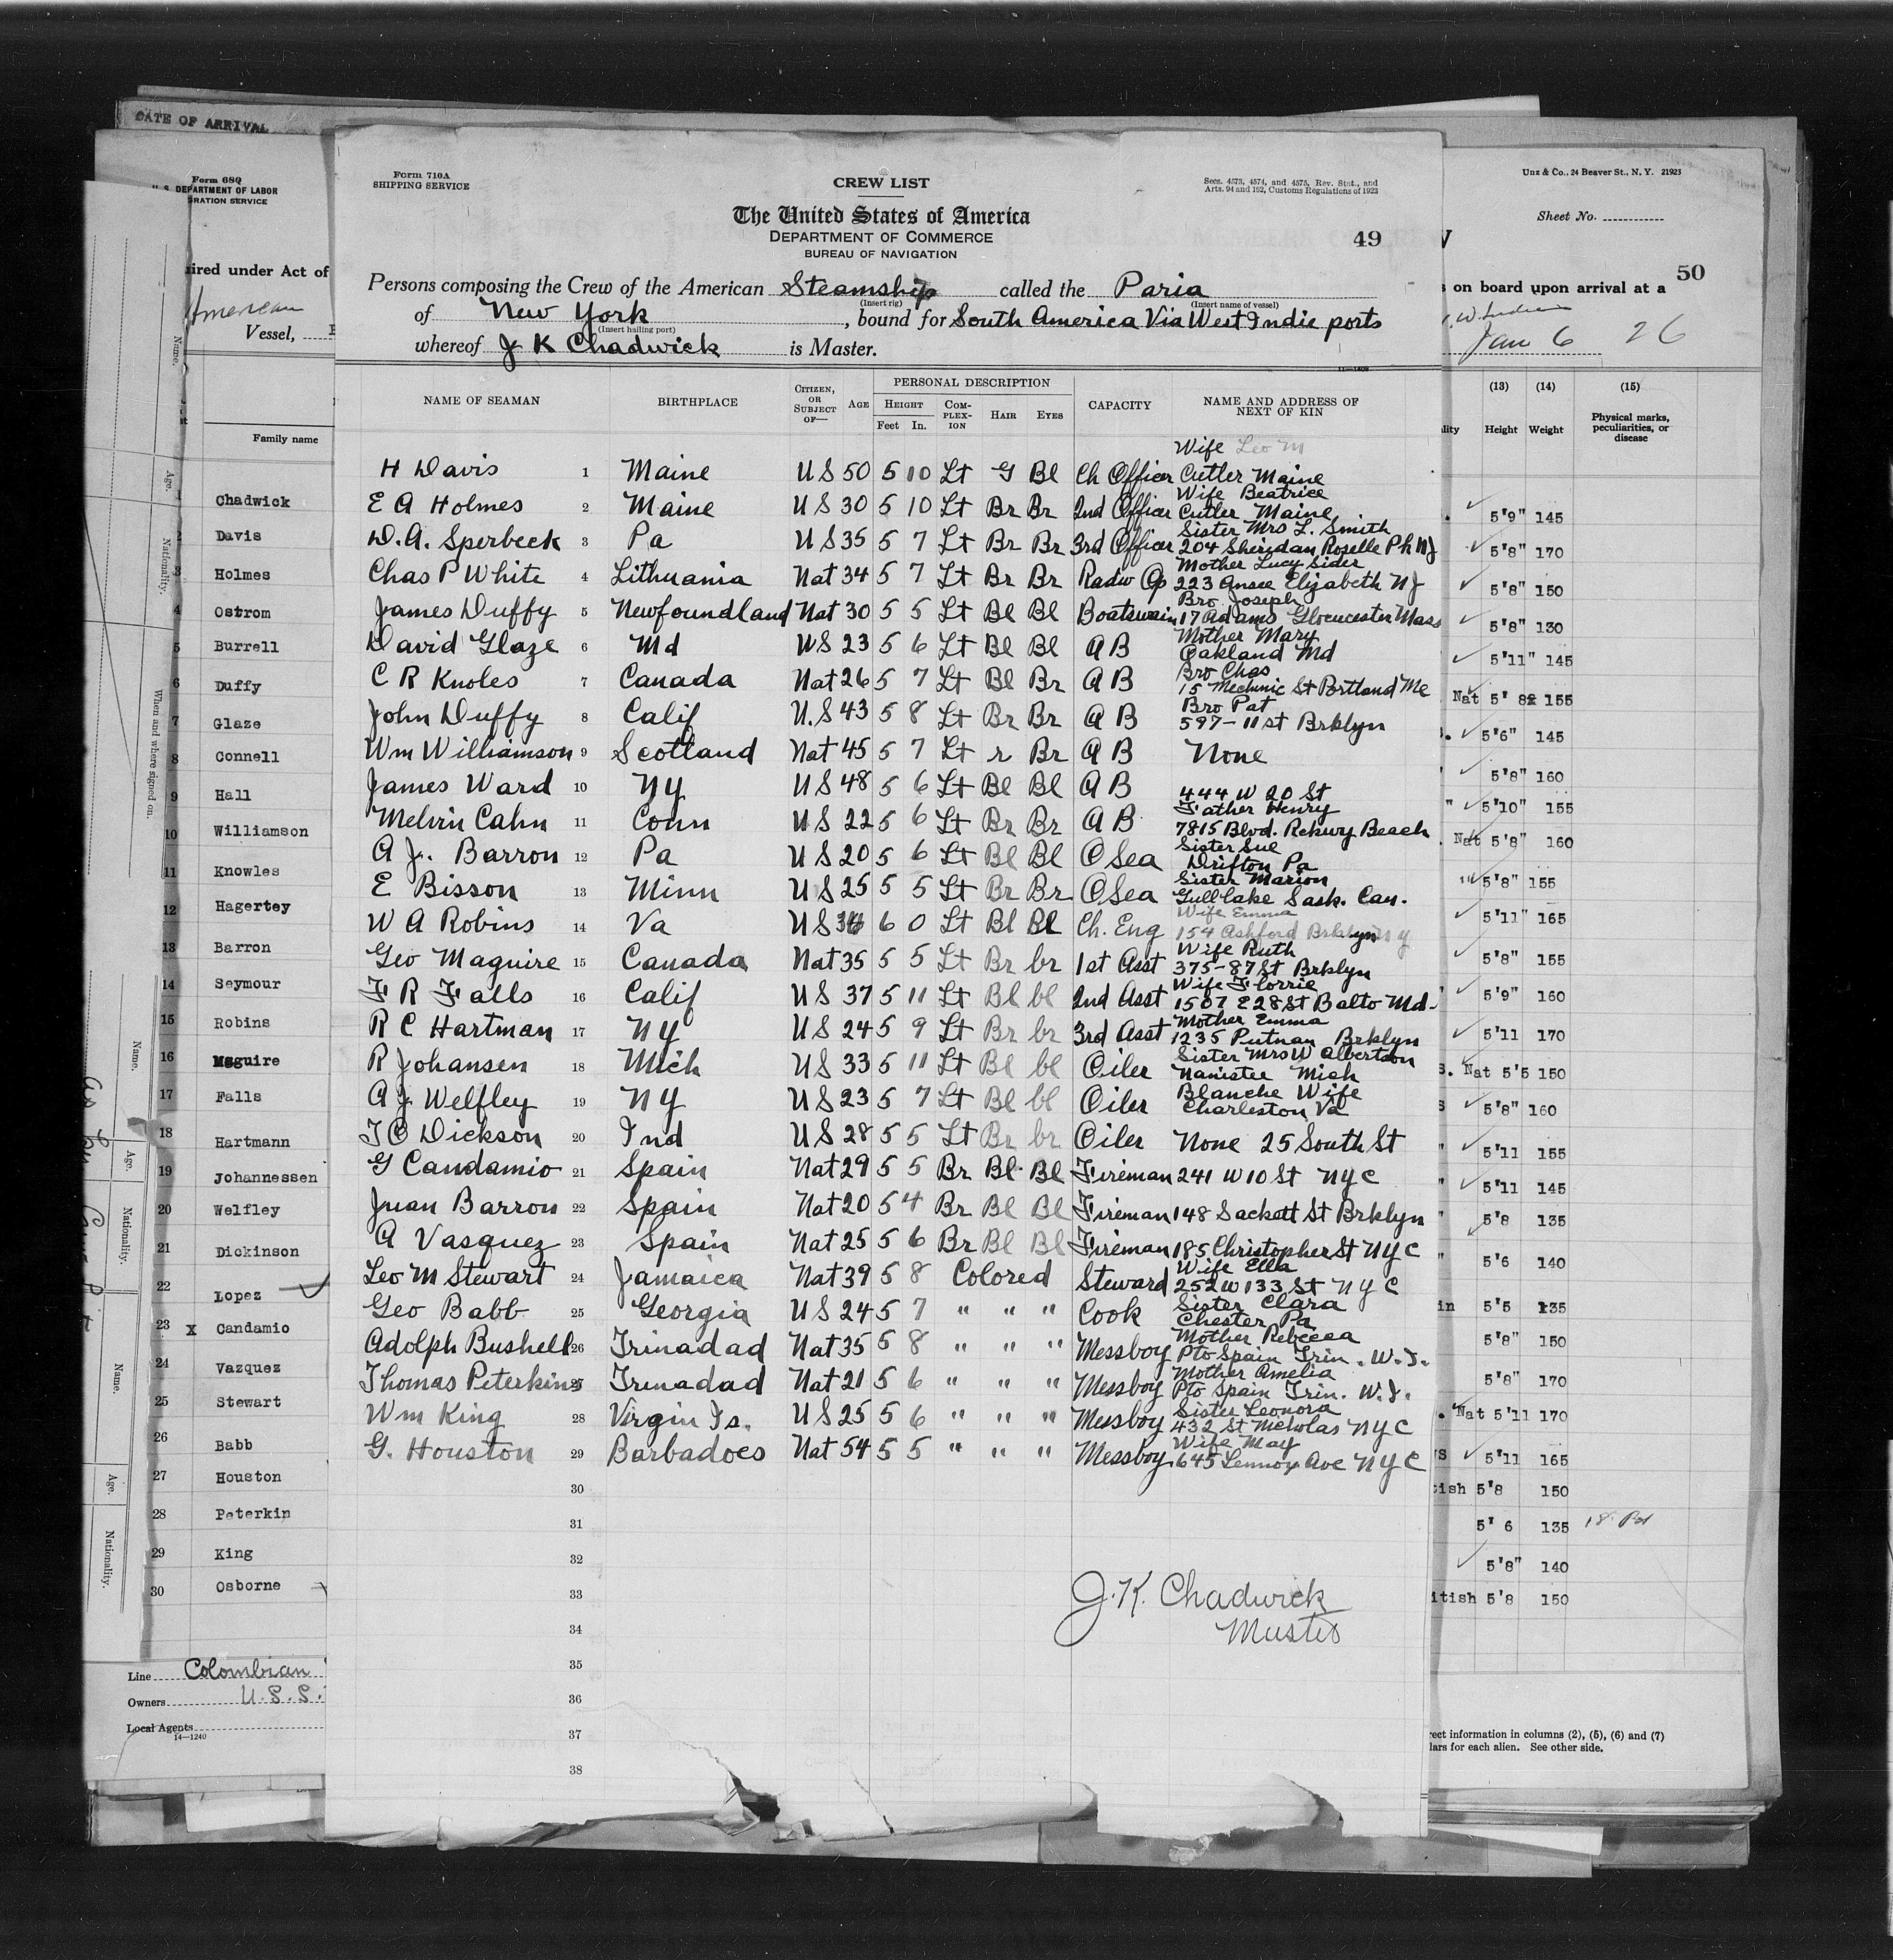 DATE OF ARRIVAL
Form 689
U.S. DEPARTMENT OF LABOR
RATION SERVICE
ired under Act of
American
Vessel,
Family name
1 Chadwick
2 Davis
3 Holmes
4 Ostrom
5 Burrell
6 Duffy
7 Glaze
8 Connell
9 Hall
10 Williamson
11 Knowles
12 Hagertey
13 Barron
14 Seymour
15 Robins
16 Maguire
17 Falls
18 Hartmann
19 Johannessen
20 Welfley
21 Dickinson
22 Lopez
23 X Candamio
24 Vazquez
25 Stewart
26 Babb
27 Houston
28 Peterkin
29 King
30 Osborne
Line Colombian
Owners U.S.S.
Local Agents
14—1240
Name.
Age.
Nationality.
When and where signed on.
Name.
Age.
Nationality.
Name.
Age.
Nationality.
Form 710A
SHIPPING SERVICE
CREW LIST
Secs. 4573, 4574, and 4575, Rev. Stat., and
Arts. 94 and 162, Customs Regulations of 1923
The United States of America
DEPARTMENT OF COMMERCE
BUREAU OF NAVIGATION
49
Persons composing the Crew of the American Steamship called the Paria
(Insert rig) (Insert name of vessel)
of New York, bound for South America Via West Indie ports
(Insert hailing port)
whereof J K Chadwick is Master.
NAME OF SEAMAN BIRTHPLACE CITIZEN, OR SUBJECT OF— AGE PERSONAL DESCRIPTION HEIGHT Feet In. COMPLEXION HAIR EYES CAPACITY NAME AND ADDRESS OF NEXT OF KIN
Wife Leo M
H Davis 1 Maine US 50 5 10 Lt G Bl Ch Officer Cutler Maine
Wife Beatrice
E A Holmes 2 Maine US 30 5 10 Lt Br Br 2nd Officer Cutler Maine
Sister Mrs L. Smith
D.A. Sperbeck 3 Pa US 35 5 7 Lt Br Br 3rd Officer 204 Sheridan Roselle Pk NJ
Mother Lucy Sider
Chas P White 4 Lithuania Nat 34 5 7 Lt Br Br Radio Op 223 Elizabeth NJ
Bro Joseph
James Duffy 5 Newfoundland Nat 30 5 5 Lt Bl Bl Boatswain 17 Adams Gloucester Mass
Mother Mary
David Glaze 6 Md US 23 5 6 Lt Bl Bl A B Oakland Md
Bro Chas
C R Knoles 7 Canada Nat 26 5 7 Lt Bl Br A B 15 Mechnic St Portland Me
Bro Pat
John Duffy 8 Calif U.S 43 5 8 Lt Br Br A B 597-11 st Brklyn
Wm Williamson 9 Scotland Nat 45 5 7 Lt r Br A B None
James Ward 10 NY US 48 5 6 Lt Bl Bl A B 444 W 20 St
Father Henry
Melvin Cahn 11 Conn US 22 5 6 Lt Br Br A B 7815 Blvd. Rckwy Beach
Sister Sue
A J. Barron 12 Pa US 20 5 6 Lt Bl Bl O Sea Drifton Pa
Sister Marion
E Bisson 13 Minn US 25 5 5 Lt Br Br O Sea Gull lake Sask. Can.
Wife Emma
W A Robins 14 Va US 6 0 Lt Bl Bl Ch. Eng 154 Ashford Brklyn N Y
Wife Ruth
Geo Maguire 15 Canada Nat 35 5 5 Lt Br br 1st Asst 375-87 St Brklyn
Wife Florrie
F R Falls 16 Calif US 37 5 11 Lt Bl bl 2nd Asst 1507 E 28 St Balto Md.
Mother Emma
R C Hartman 17 NY US 24 5 9 Lt Br br 3rd Asst 1235 Putnan Brklyn
Sister Mrs W Albertson
R Johansen 18 Mich US 33 5 11 Lt Bl bl Oiler Manistee Mich
Blanche Wife
A J Welfley 19 NY US 23 5 7 Lt Bl bl Oiler Charleston Va
T O Dickson 20 Ind US 28 5 5 Lt Br br Oiler None 25 South St
G Candamio 21 Spain Nat 29 5 5 Br Bl Bl Fireman 241 W 10 St NYC
Juan Barron 22 Spain Nat 20 5 4 Br Bl Bl Fireman 148 Sackett St Brklyn
A Vasquez 23 Spain Nat 25 5 6 Br Bl Bl Fireman 185 Christopher St NYC
Wife Ella
Leo M Stewart 24 Jamaica Nat 39 5 8 Colored Steward 252 W 133 St NYC
Sister Clara
Geo Babb 25 Georgia US 24 5 7 " " " Cook Chester Pa
Mother Rebecca
Adolph Bushell 26 Trinadad Nat 35 5 8 " " " Messboy Pto Spain Trin. W.I.
Mother Amelia
Thomas Peterkins 27 Trinadad Nat 21 5 6 " " " Messboy Pto Spain Trin. W.I.
Sister Leonora
Wm King 28 Virgin Is. US 25 5 6 " " " Messboy 432 St Nicholas NYC
Wife May
G. Houston 29 Barbadoes Nat 54 5 5 " " " Messboy 645 Lennox Ave NYC
30
31
32
33
34
35
36
37
38
J.K. Chadwick
Master
Unz & Co., 24 Beaver St., N. Y. 21923
Sheet No.
W
50
s on board upon arrival at a
Jan 6 26
(13) (14) (15)
lity Height Weight Physical marks, peculiarities, or disease
5'9" 145
5'8" 170
5'8" 150
5'8" 130
5'11" 145
Nat 5' 8 155
5'6" 145
5'8" 160
" 5'10" 155
Nat 5'8" 160
5'8" 155
5'11" 165
5'8" 155
5'9" 160
5'11 170
S. Nat 5'5 150
S 5'8" 160
" 5'11 155
" 5'11 145
" 5'8 135
" 5'6 140
in 5'5 135
5'8" 150
5'8" 170
Nat 5'11 170
S 5'11 165
tish 5'8 150
5' 6 135
5'8" 140
itish 5'8 150
rect information in columns (2), (5), (6) and (7)
lars for each alien. See other side.